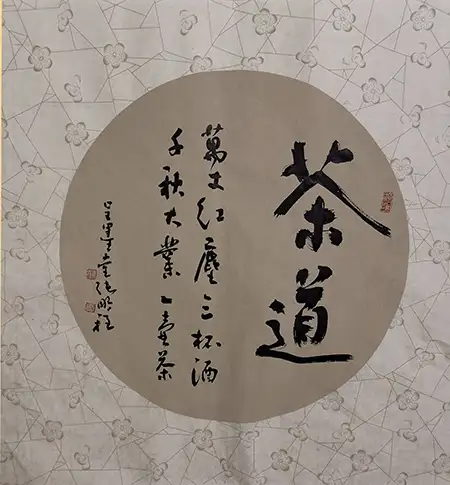 茶道
萬丈紅塵三杯酒
千秋大業一壺茶